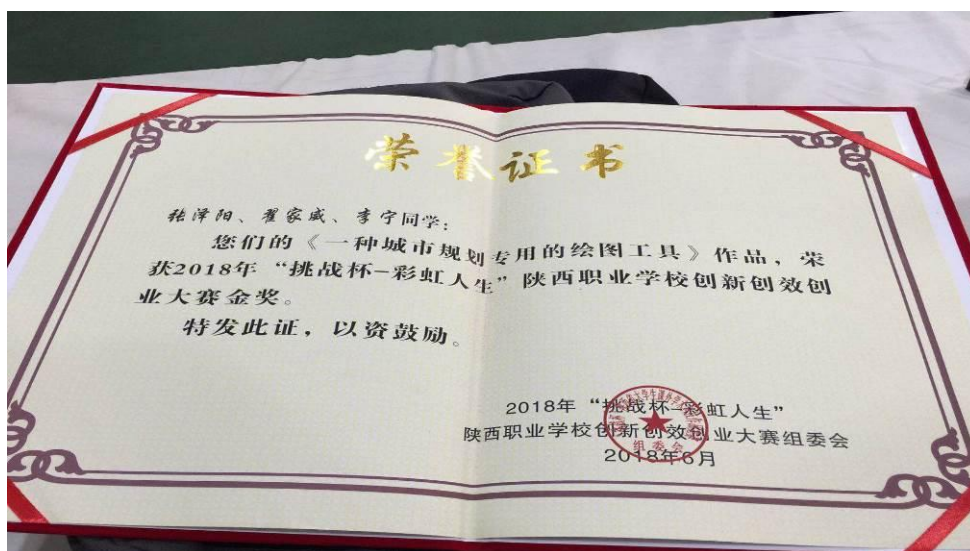 荣誉证书
张泽阳、翟家威、李宁同学：
您们的《一种城市规划专用的绘图工具》作品，荣
获2018年“挑战杯-彩虹人生”陕西职业学校创新创效创
业大赛金奖。
特发此证，以资鼓励。
2018年“挑战杯-彩虹人生”
陕西职业学校创新创效创业大赛组委会
2018年6月
组委会